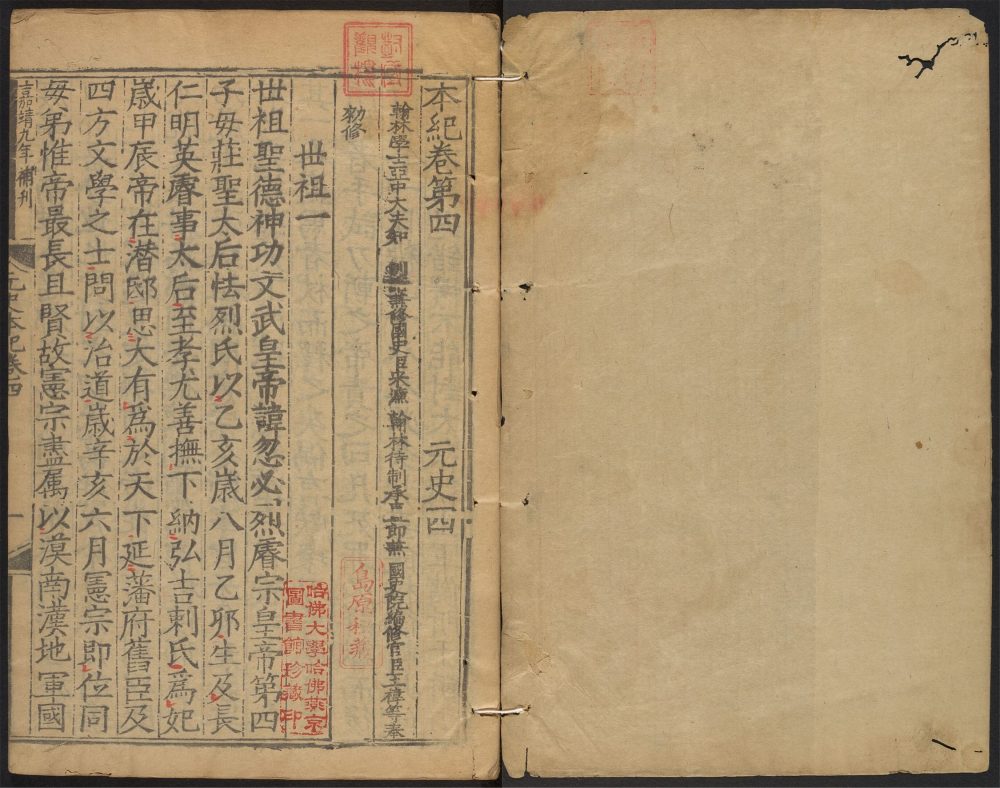 本紀卷第四 元史四
翰林學士亞中大夫知 制誥兼修國史臣宋濂 翰林待制承直郎兼 國史院編修官臣王褘等奉
勑修
世祖一
世祖聖德神功文武皇帝諱忽必烈睿宗皇帝第四
子毋莊聖太后怯烈氏以乙亥歲八月乙卯生及長
仁明英睿事太后至孝尤善撫下納弘吉剌氏爲妃
歲甲辰帝在潜邸思大有爲於天下延藩府舊臣及
四方文學之士問以治道歲辛亥六月憲宗即位同
毋弟惟帝最長且賢故憲宗盡属以漠南漢地軍國
嘉靖九年補刊
元史本紀卷四
一
哈佛大學哈佛燕京
圖書館珍藏印
島原秘藏